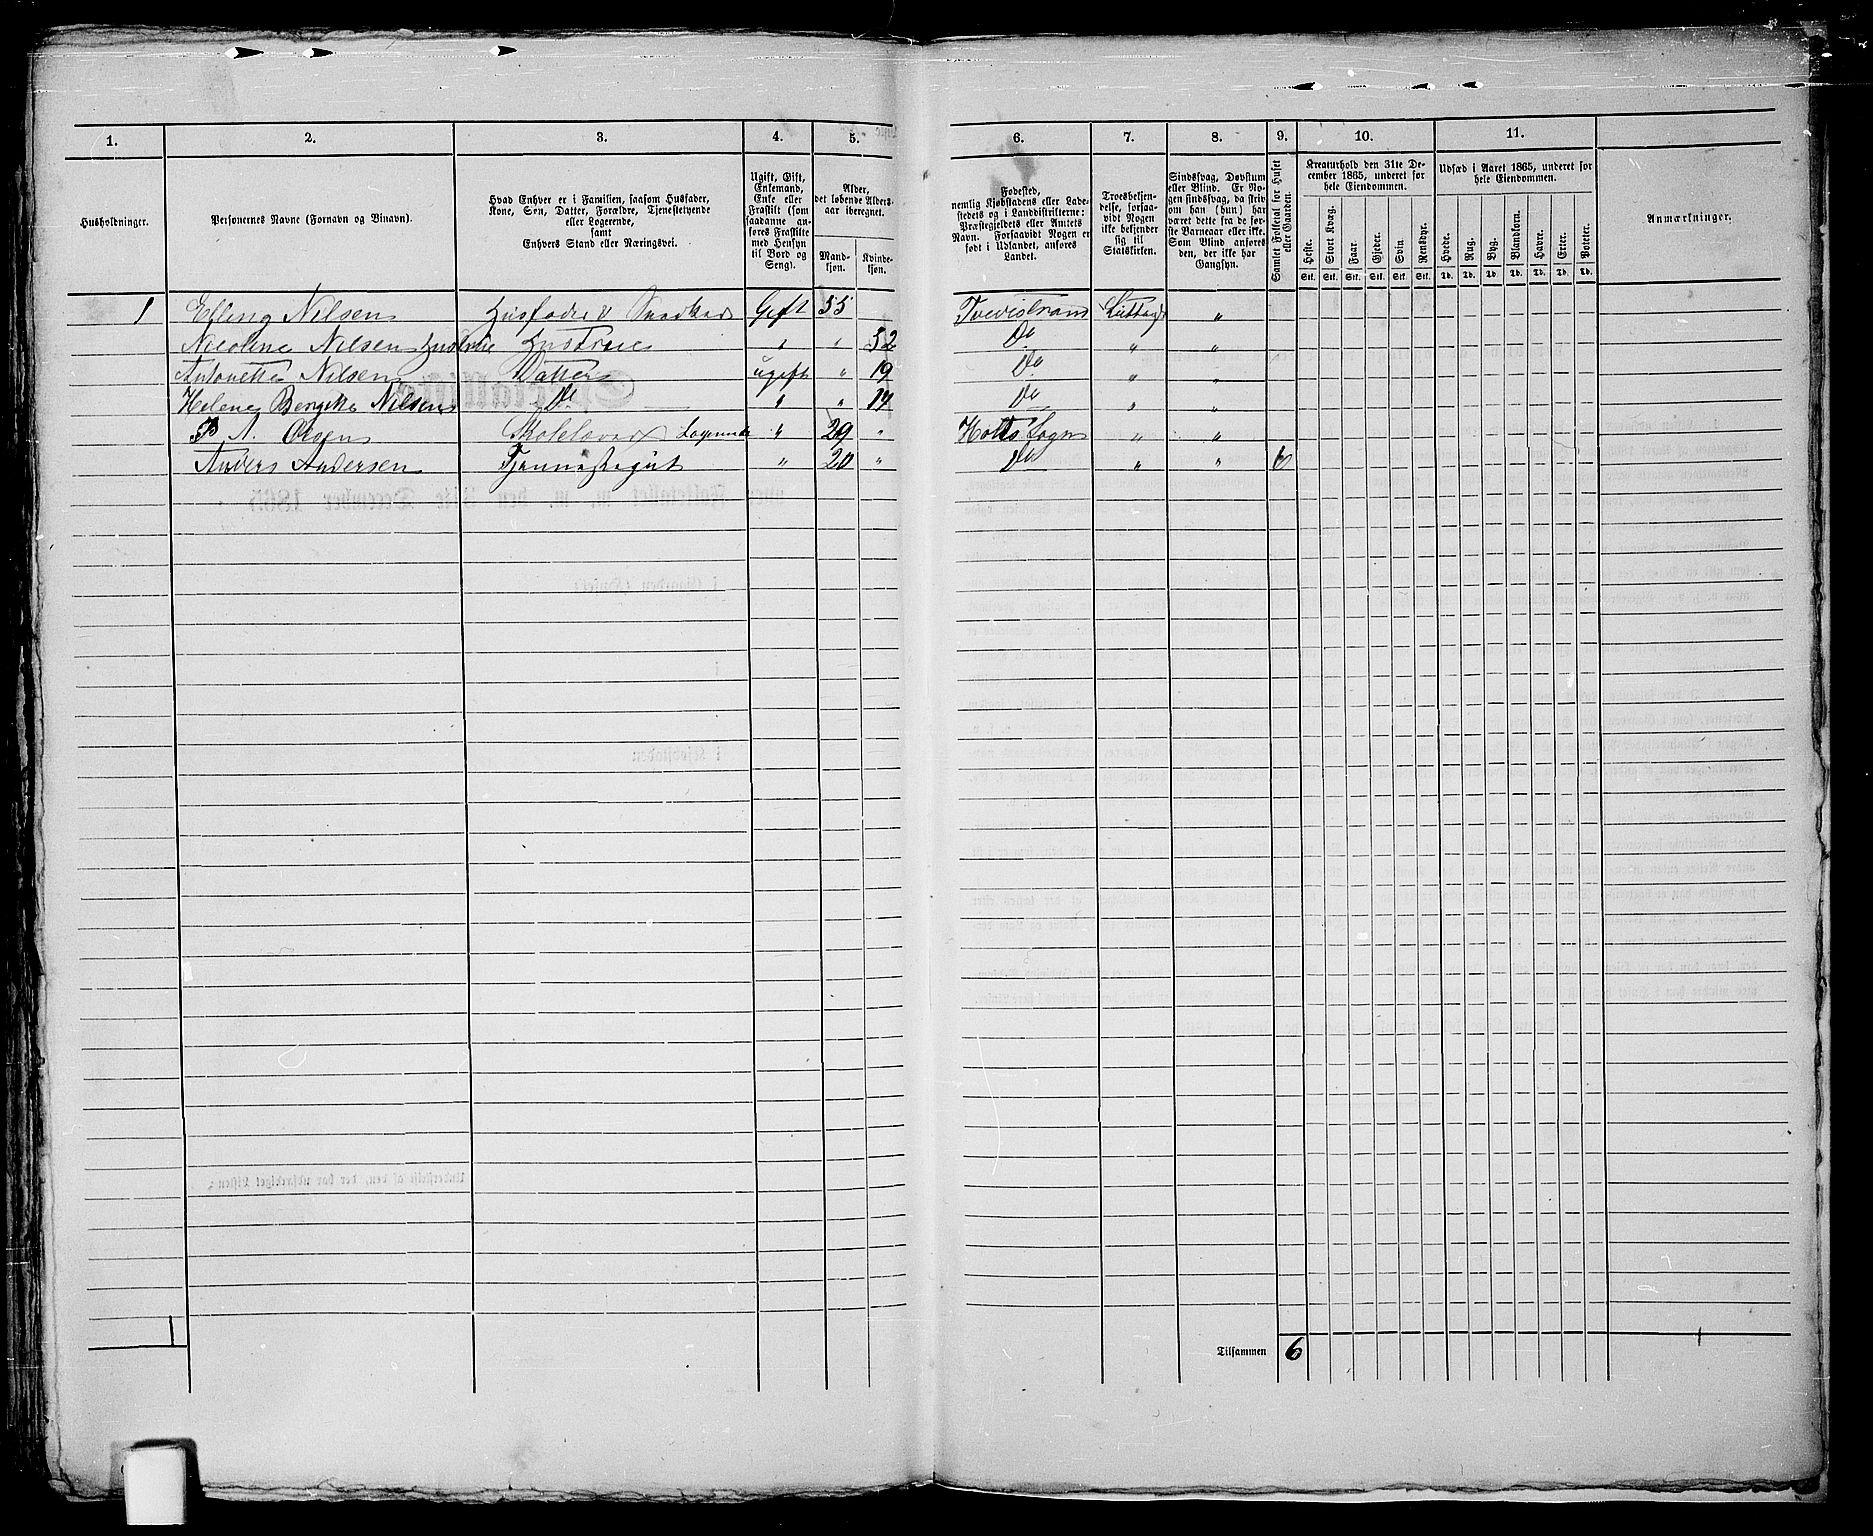 1. 2. 3. 4. 5. 6. 7. 8. 9. 10. 11.
Husholdninger.
Personernes Navne (Fornavn og Binavn).
Hvad Enhver er i Familien, saasom Husfader,
Kone, Søn, Datter, Forældre, Tjenestetyende
eller Logerende,
samt
Enhvers Stand eller Næringsvei.
Ugift, Gift,
Enkemand,
Enke eller
Fraskilt (som
saadanne an-
føres Fraskilte
med Hensyn
til Bord og
Seng).
Alder,
det løbende Alders-
aar iberegnet.
Mand-
kjøn.
Kvinde-
kjøn.
Fødested,
nemlig Kjøbstadens eller Lade-
stedets og i Landdistrikterne:
Præstegjeldets eller Amtets
Navn. Forsaavidt Nogen er
født i Udlandet, anføres
Landet.
Troesbekjen-
delse, forsaa-
vidt Nogen
ikke bekjender
sig til
Statskirken.
Sindssvag, Døvstum
eller Blind. Er No-
gen sindssvag, da skriv
om han (hun) har
været dette fra de før-
ste Barneaar eller ikke.
Som Blind anføres
den, der ikke har
Gangsyn.
Samlet Folketal for Huset
eller Gaarden.
Kreaturhold den 31te De-
cember 1865, underet for
hele Eiendommen.
Heste. Stort Kvæg. Faar. Gjeder. Svin. Rensdyr.
Stk. Stk. Stk. Stk. Stk. Stk.
Udsæd i Aaret 1865, underet for
hele Eiendommen.
Hvede. Rug. Byg. Blandkorn. Havre. Erter. Poteter.
Td. Td. Td. Td. Td. Td. Td.
Anmærkninger.
1 Elling Nilsen Husfader Snedker Gift 55 Tvedestrand "
Nicoline Nilsen Hustrue Hustrue " " 52 Do " "
Antonette Nilsen Datter ugift " 19 Do " "
Helene Nilsen Do " " 14 Do " "
A. Olsen Logerende " 29 " Holts Sogn " "
Anders Andersen Tjenestegut " 20 " Do " " 6
1
Tilsammen 6